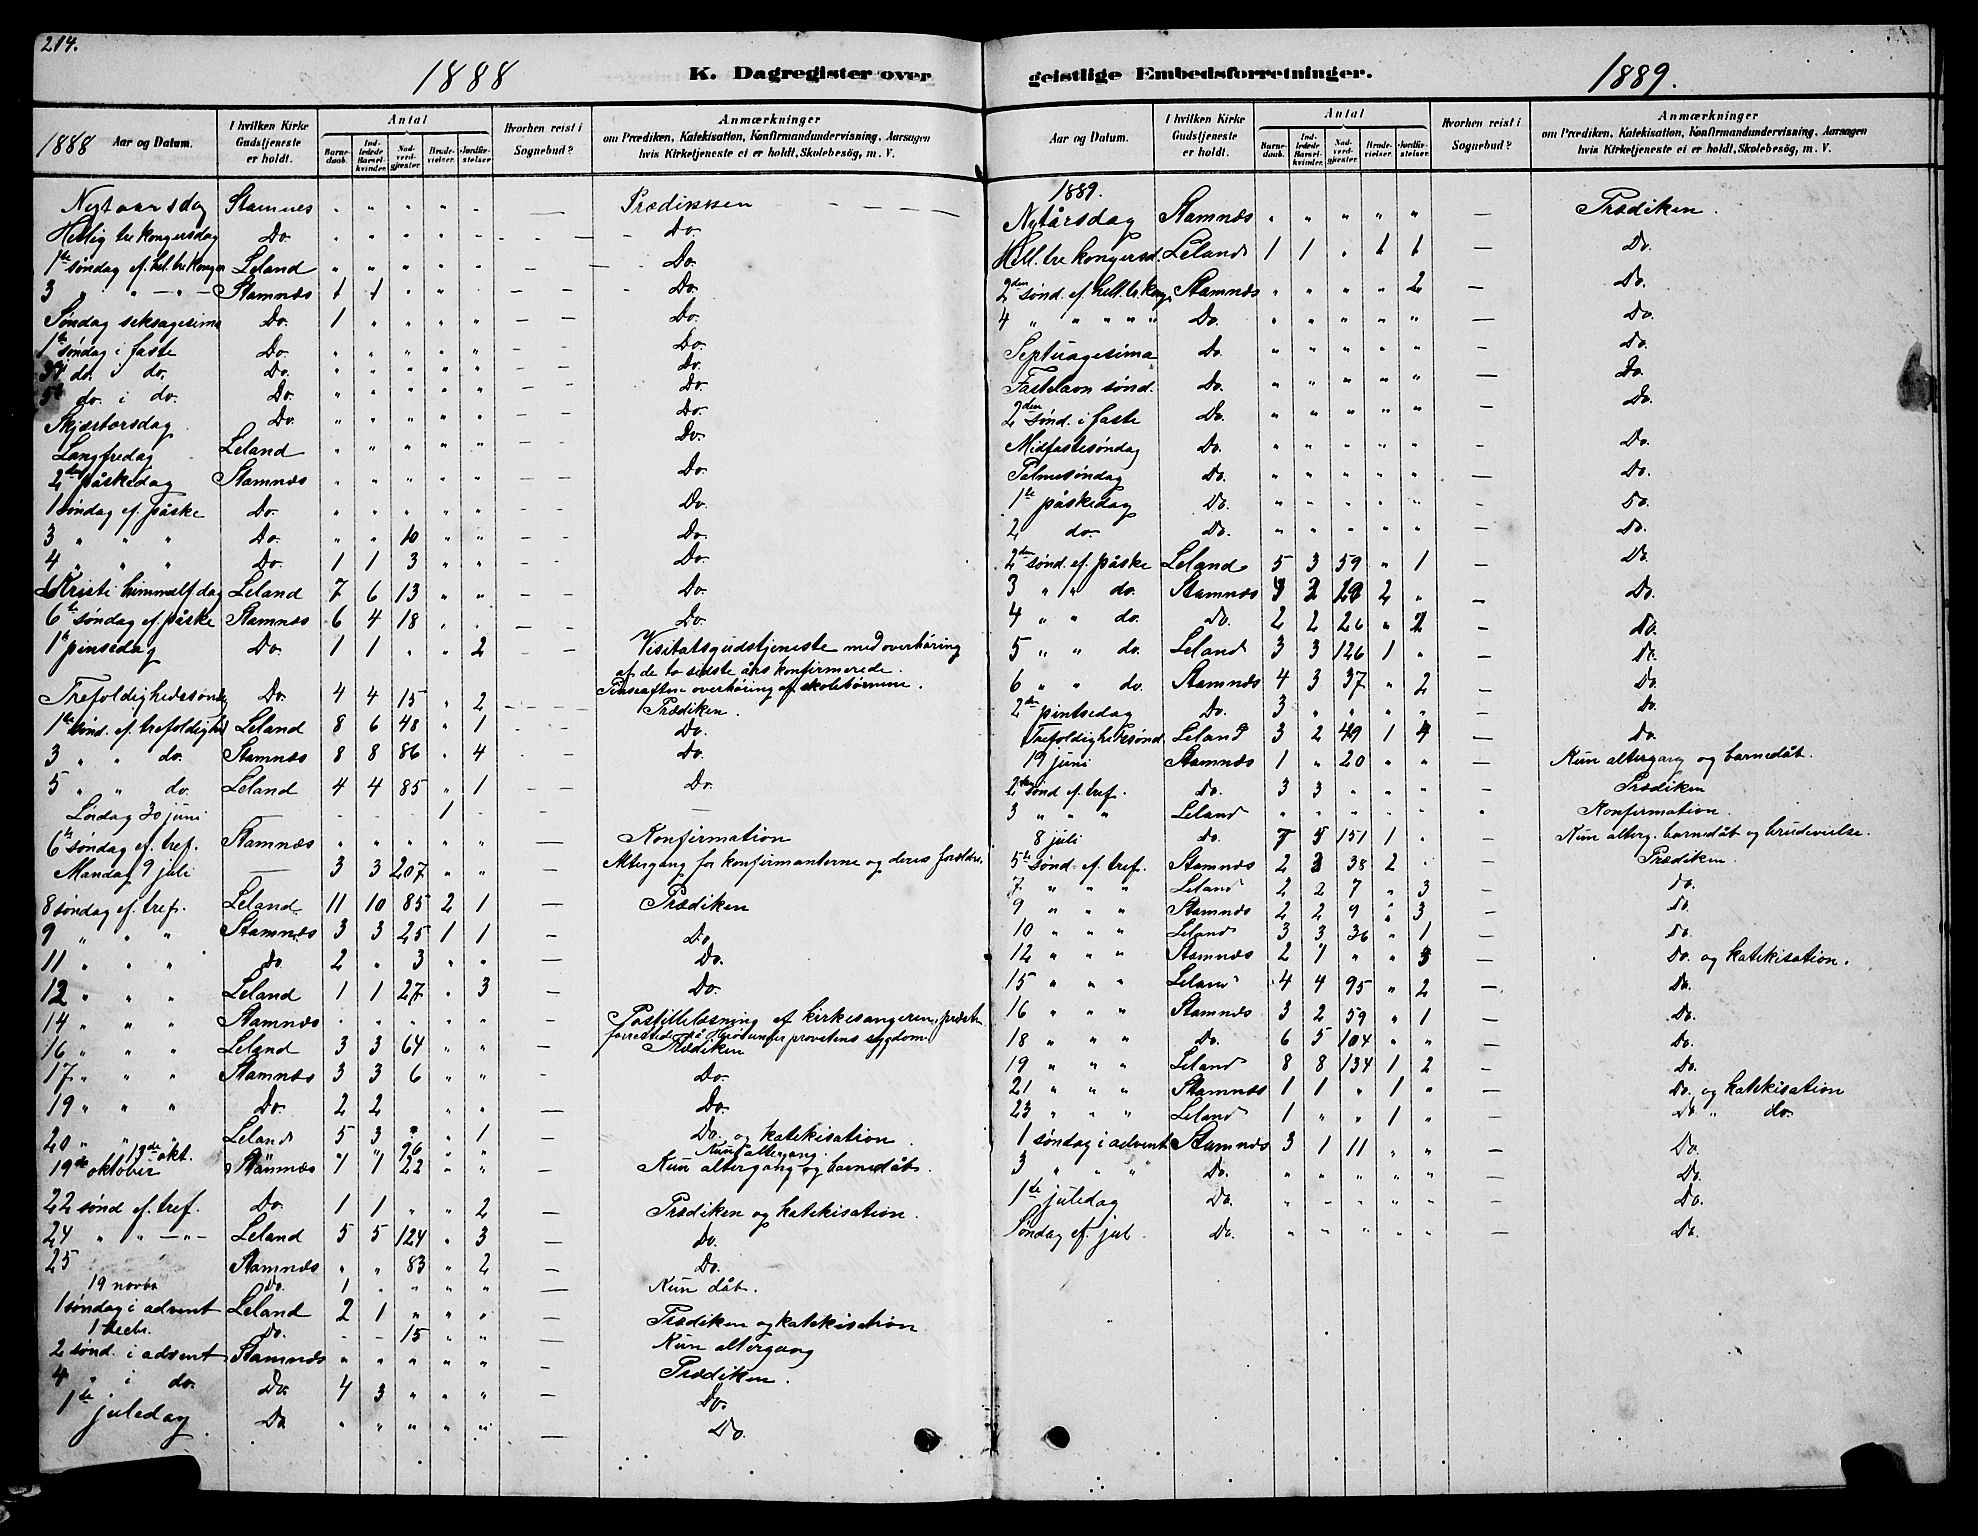 214.
1888 K. Dagregister over
1888 Aar og Datum. I hvilken Kirke Gudstjeneste er holdt. Antal Barnedaab. Indledede Barselkvinder. Nadverdgjester. Brudevielser. Jordfæstelser. Hvorhen reist i Sognebud? Anmærkninger om Prædiken, Katekisation, Konfirmandundervisning, Aarsagen hvis Kirketjeneste ei er holdt, Skolebesøg, m. V.
Nytaarsdag Stamnes " " " " " — Prædikken
Hellig tre kongersdag Do. " " " " " — Do.
1ste søndag ef. hel. tre konger Leland " " " " " — Do.
3 " " — " — Stamnæs 1 1 " " " — Do.
Søndag seksagesima Do. 1 " " " " — Do.
1ste søndag i faste Do. " " " " " — Do.
3d do. i do. Do. " " " " " — Do.
5te do. i do. Do. " " " " " — Do.
Skjærtorsdag Do. " " " " " — Do.
Langfredag Leland " " " " " — Do.
2den påskedag Stamnæs " " " " " — Do.
1 søndag ef. påske Do. " " " " " — Do.
3 " " " Do. " " 10 " " — Do.
4 " " " Do. 1 1 3 " " — Do.
Kristi himmelf dag Leland 7 6 13 " " — Do.
6te søndag ef. påske Stamnæs 6 4 18 " " — Do.
1te pinsedag Do. 1 1 " " 2 — Visitatsgudstjeneste med overhøring
af de to sidste års konfirmerede.
overhøring af skolebørnene.
Trefoldighedssøndag Do. 4 4 15 " 2 — Prædiken.
1te sønd. ef. trefoldighed Leland 8 6 48 " 1 — Do.
3 " " do. Stamnæs 8 8 86 " 4 — Do.
5 " " do. Leland 4 4 85 " 1 — Do.
Lørdag 30 juni — - - - 1 " —
6te søndag ef. tref. Stamnæs " " " " " Konfirmation
Mandag 9 juli — 3 3 207 " " Altergang for konfirmanterne og deres forældre.
8 søndag ef. tref. Leland 11 10 85 2 1 — Prædiken
9 " " " Stamnæs 3 3 25 1 1 — Do.
11 " " " Do. 2 " 3 " " — Do.
12 " " " Leland 1 1 27 " 3 — Do.
14 " " " Stamnæs " " " " " — Postillelæsning af kirkesangeren, præsten
under provstens sygdom.
16 " " " Leland 3 3 64 " " — Prædiken
17 " " " Stamnæs 3 3 6 " " — Do.
19 " " " Do. 2 2 " " — Do.
20 " " Leland 5 3 " " 1 — Do. og katekisation.
13de okt. " " 96 " " Kun altergang.
19de oktober Stamnæs 1 1 22 " " — Kun altergang og barnedåb.
22 sønd ef. tref. Do. 1 1 " " 2 — Prædiken og katekisation.
24 " " — " — Leland 5 5 124 " 3 — Do.
25 Stamnæs " " 83 " 2 — Do.
19 novbr Do. 1 " " " " Kun dåb.
1 søndag i advent Leland 2 1 " " " — Prædiken og katekisation
1 decbr. Do. - - 15 " " Kun altergang
2 sønd. i advent Stamnæs " " " " " — Prædiken.
4 " i do. Do. 4 3 " " " — Do.
1ste juledag Do. " " " " " — Do.
geistlige Embedsforretninger. 1889.
Aar og Datum. I hvilken Kirke Gudstjeneste er holdt. Antal Barnedaab. Indledede Barselkvinder. Nadverdgjester. Brudevielser. Jordfæstelser. Hvorhen reist i Sognebud? Anmærkninger om Prædiken, Katekisation, Konfirmandundervisning, Aarsagen hvis Kirketjeneste ei er holdt, Skolebesøg, m. V.
1889.
Nytårsdag Stamnæs " " " " " — Prædiken.
Hell. tre kongersd. Leland 1 1 " 1 1 — Do.
2den sønd. ef. hell. tr. kong. Stamnæs " " " " 2 — Do.
4 " " " " " Do. " " " " " — Do.
Septuagesima Do. " " " " " — Do.
Fastelavn sønd. Do. " " " " " — Do.
2den sønd. i faste Do. " " " " " — Do.
Midfastesøndag Do. " " " " " — Do.
Palmesøndag Do. " " " " " — Do.
1te påskedag Do. " " " " " — Do.
2 do. Do. " " " " " — Do.
2den sønd. ef. påske Leland 5 3 59 " 1 — Do.
3 " " do. Stamnæs 2 2 " — Do.
4 " " do. Do. 2 2 26 " 2 — Do.
5 " " do. Leland 3 3 126 1 " — Do.
6 " " do. Stamnæs 4 3 37 " 2 — Do.
2den pintsedag Do. 3 " " " " — Do.
Trefoldighedssønd. Leland 3 2 49 1 4 — Do.
19 juni Stamnæs 1 " 20 " " — Kun altergang og barnedåb.
2den sønd ef. tref. Do. 3 3 " " " — Prædiken
3 " " " Leland " " " " " " Konfirmation
8 juli Do. 7 5 151 1 " — Kun alterg. barnedåb og brudevielse.
5te sønd. ef. tref. Stamnæs 2 2 38 2 " — Prædiken.
7 " " " Leland 2 2 7 " 3 — Do.
9 " " " Stamnæs 2 2 9 " 3 — Do.
10 " " " Leland 3 3 36 " 1 — Do.
12 " " " Stamnæs 2 1 " " 3 — Do. og katekisation.
15 " " " Leland 4 4 95 " 2 — Do.
16 " " " Stamnæs 3 2 59 " 1 — Do.
18 " " " Do. 6 5 104 " " — Do.
19 " " " Leland 8 8 134 1 2 — Do.
21 " " " Stamnæs 1 1 " 1 " — Do. og katekisation
23 " " " Leland 1 " " 1 " — Do. " do.
1 søndag i advent Stamnæs 3 1 11 " " — Do.
3 " " " Do. " " " " " — Do.
1ste juledag Do. " " " " " — Do.
Søndag ef. jul. Do. " " " " " — Do.